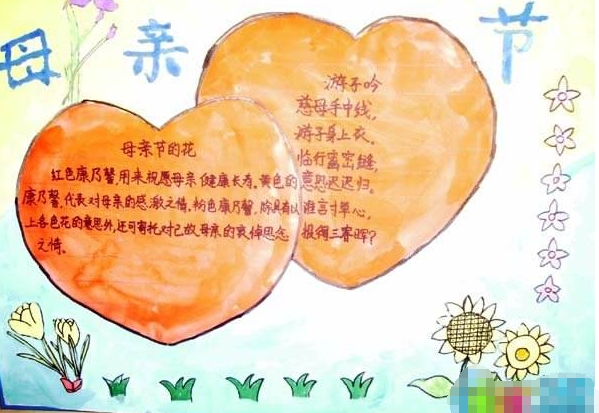 母亲节
游子吟
慈母手中线,
游子身上衣。
临行密密缝,
意恐迟迟归。
谁言寸草心,
报得三春晖?
母亲节的花
红色康乃馨,用来祝愿母亲健康长寿。黄色的
康乃馨,代表对母亲的感激之情。粉色康乃馨,除具有以
上各色花的意思外,还可寄托对已故母亲的哀悼思念
之情。